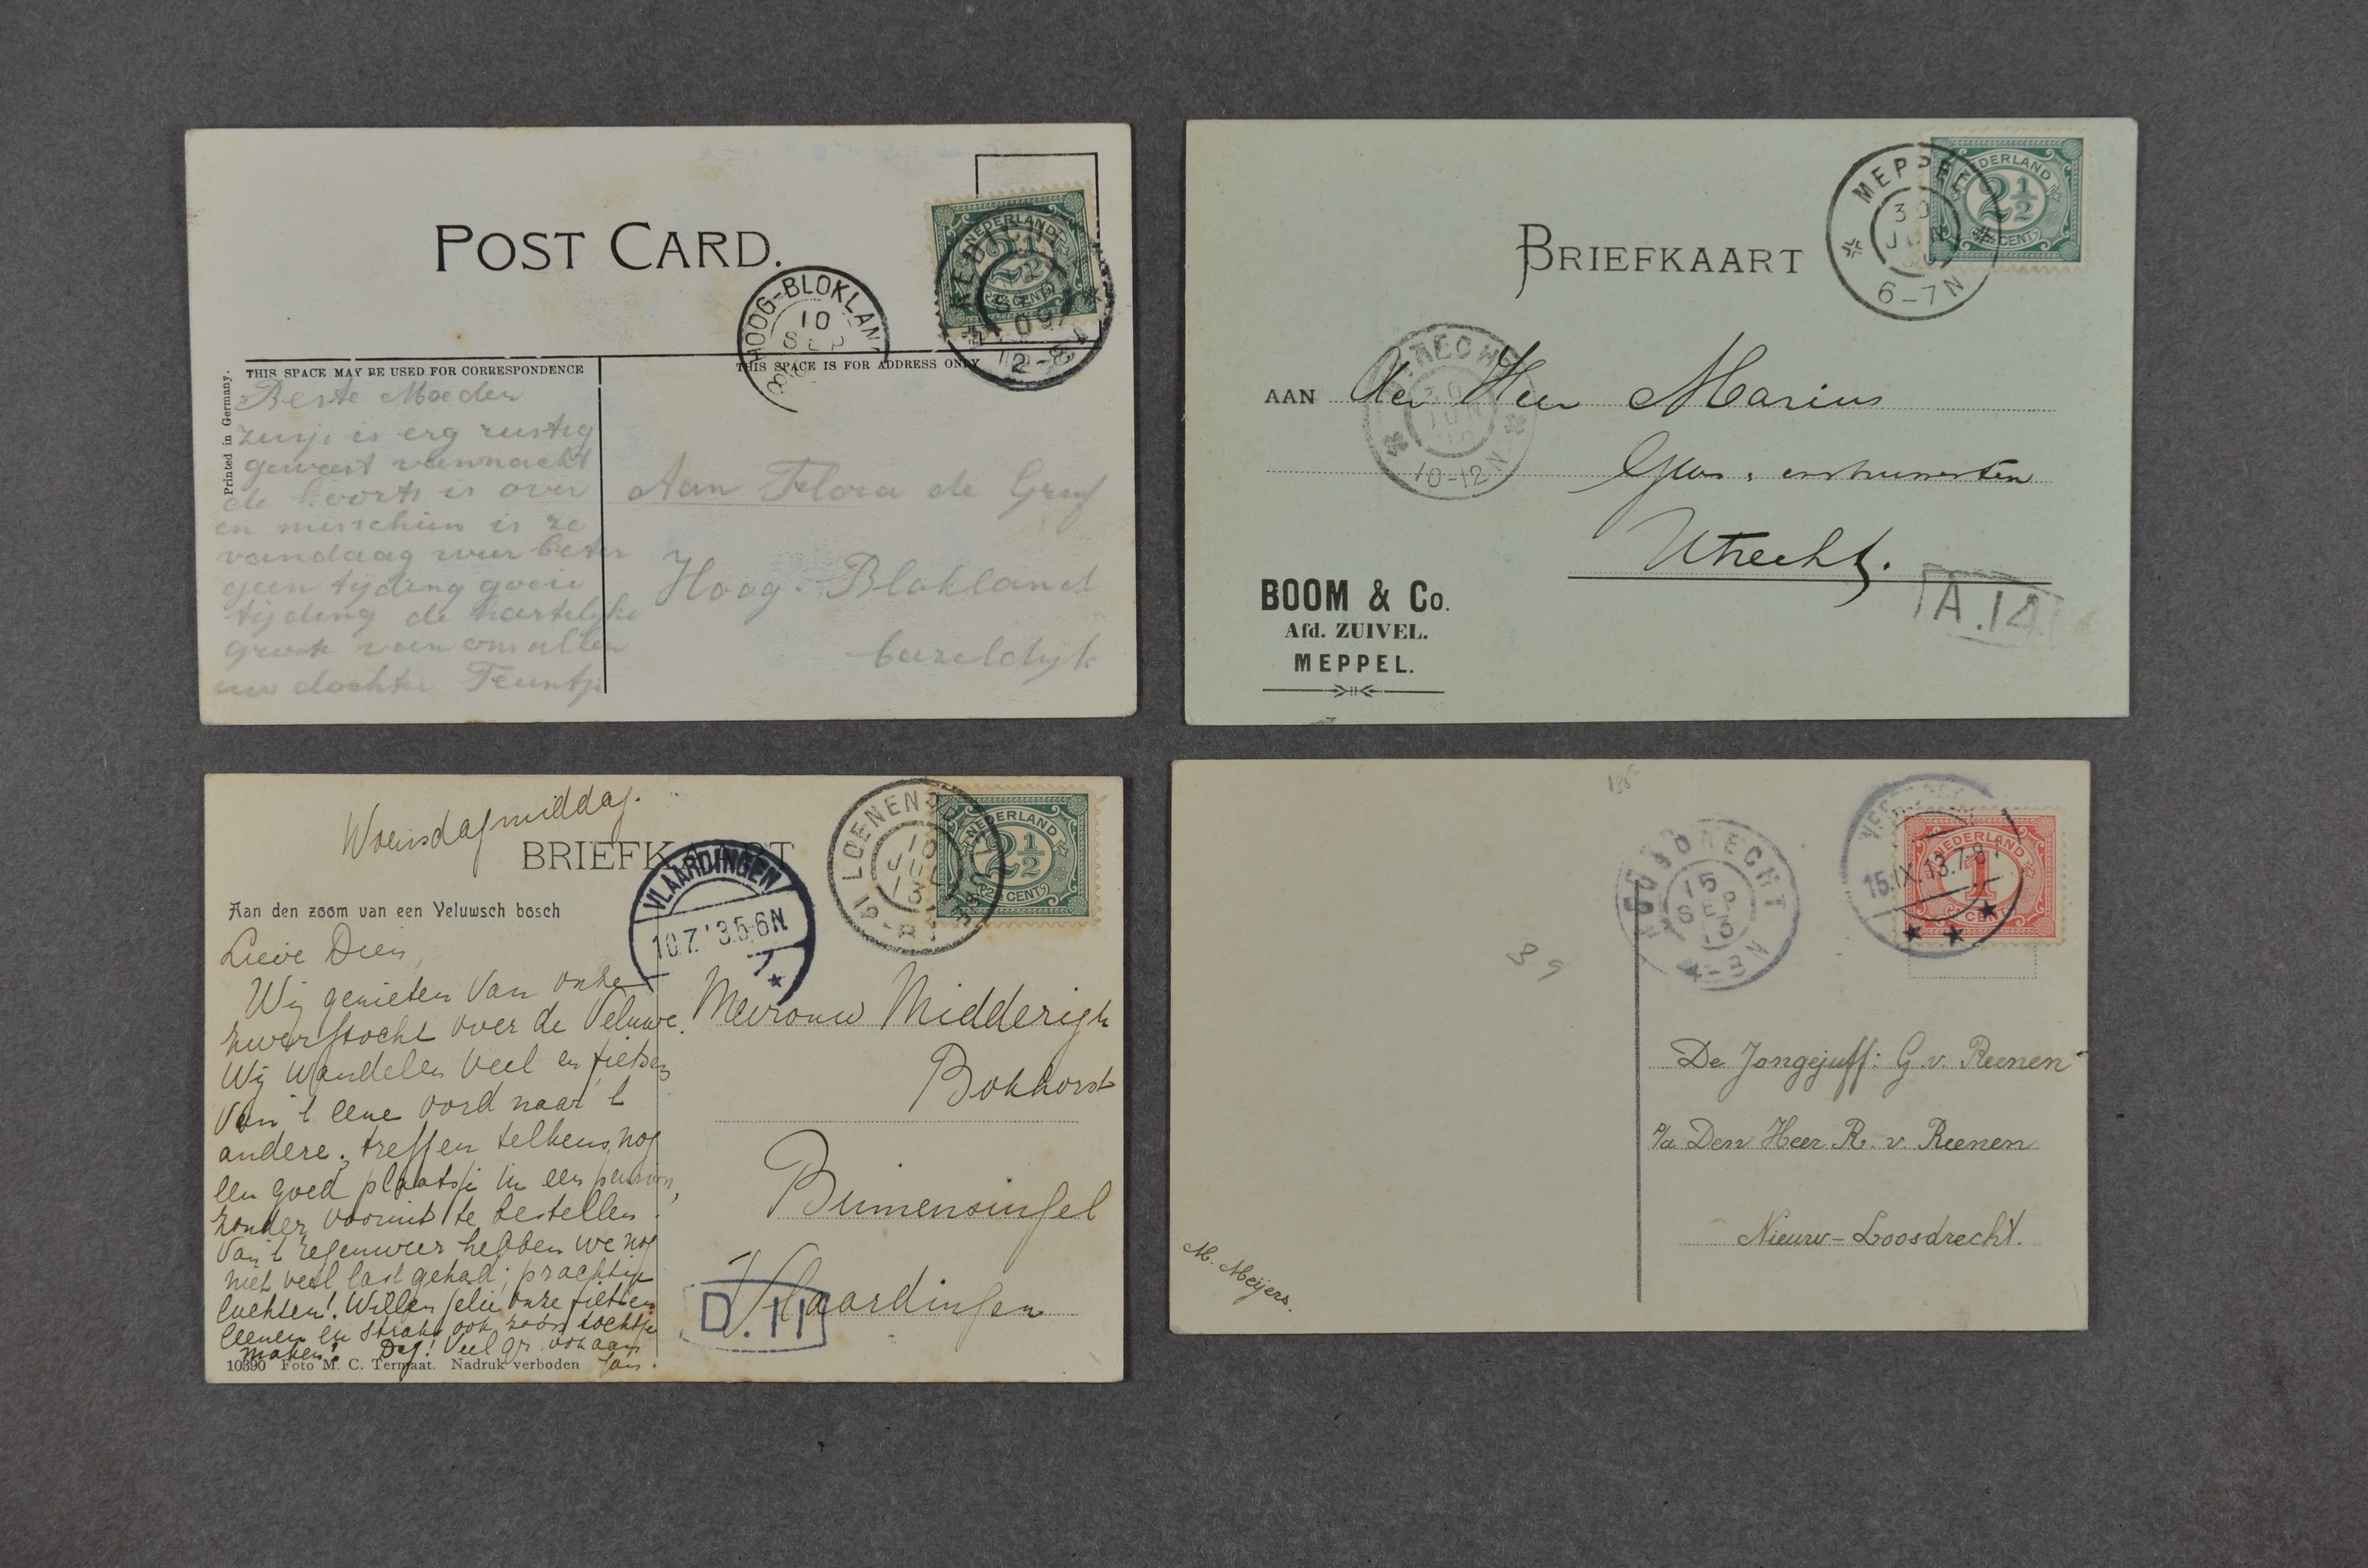 POST CARD.
NEDERLAND
2½
CENT
HOOG-BLOKLAND
10
SEP
THIS SPACE MAY BE USED FOR CORRESPONDENCE
THIS SPACE IS FOR ADDRESS ONLY
Printed in Germany.
Beste Moeder
zusje is erg rustig
geweest vannacht
de koorts is over
en misschien is ze
vandaag weer beter
geen tijding goeie
tijding de hartelyke
groete van ons allen
uw dochter Teuntje
Aan Flora de Gruyf
Hoog-Blokland
bazeldyk
BRIEFKAART
MEPPEL
30
JUN
6-7N
NEDERLAND
2½
CENT
UTRECHT
30
JUN
10-12N
AAN den Heer Marius
Glas. instrumenten
Utrecht.
BOOM & Co.
Afd. ZUIVEL.
MEPPEL.
A.14
Woensdagmiddag.
BRIEFKAART
VLAARDINGEN
10.7.'13.5-6N
LOENEN
10
JUL
13
NEDERLAND
2½
2½ CENT
Aan den zoom van een Veluwsch bosch
Lieve Dien,
Wij genieten van onze
zwerftocht over de Veluwe.
Wij wandelen veel en fietsen
van 't eene oord naar 't
andere; treffen telkens nog
een goed plaatsje in een pension,
zonder vooruit te bestellen.
Van 't regenweer hebben we nog
niet veel last gehad; prachtige
luchten! Willen jelui onze fietsen
leenen en straks ook zoo'n tochtje
maken? Dag! Veel gr. ook aan
Jan.
10390 Foto M. C. Termaat. Nadruk verboden
Mevrouw Midderigh
Bokhorst
Binnensingel
Vlaardingen
D.11
136
39
LOOSDRECHT
15
SEP
13
4-8N
15.IX.13.7-8
NEDERLAND
1
CENT
De Jongejuff: G. v. Reenen
p/a Den Heer R. v. Reenen
Nieuw-Loosdrecht.
M. Meijers.